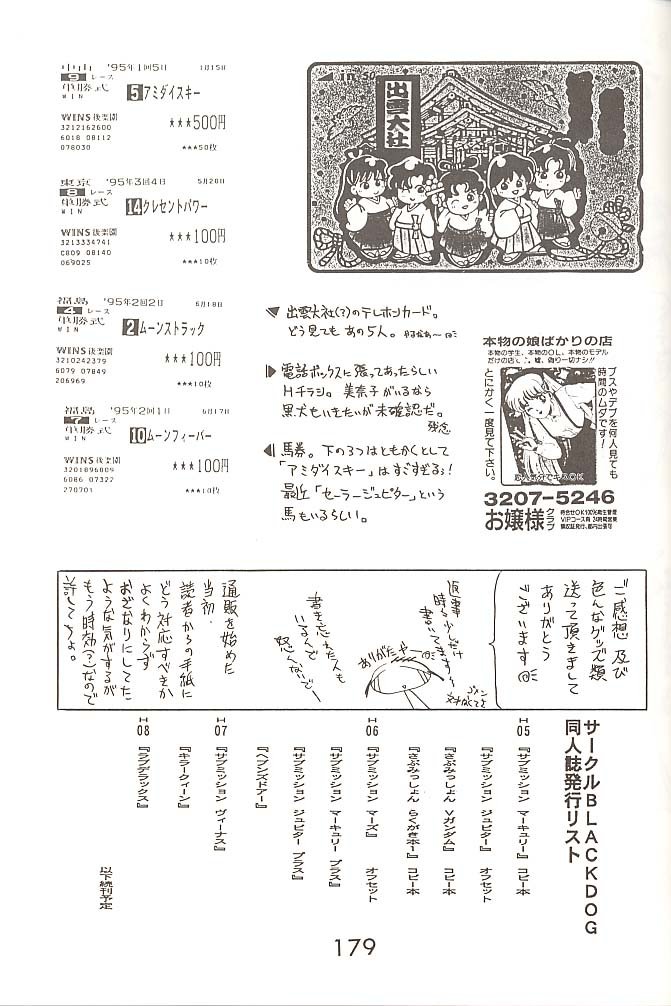 中山 '95年1回5日 1月15日
9 レース
単勝式 5 アミダイスキー
WIN
WINS後楽園 ★★★500円
3212162600
6018 08112
078030 ★★★50枚
東京 '95年3回4日 5月28日
8 レース
単勝式 14 クレセントパワー
WIN
WINS後楽園 ★★★100円
3213334741
C809 08140
069025 ★★★10枚
福島 '95年2回2日 6月18日
4 レース
単勝式 2 ムーンストラック
WIN
WINS後楽園 ★★★100円
3210242379
6079 07849
206969 ★★★10枚
福島 '95年2回1日 6月17日
7 レース
単勝式 10 ムーンフィーバー
WIN
WINS後楽園 ★★★100円
3201896809
6086 07322
270701 ★★★10枚
50
出雲大社
出雲大社(?)のテレホンカード。
どう見てもあの5人。
電話ボックスに張ってあったらしい
Hチラシ。美奈子がいるなら
黒犬もいきたいが未確認だ。
残念
馬券。下の3つはともかくとして
「アミダイスキー」はすごすぎる!
最近「セーラージュピター」という
馬もいるらしい。
本物の娘ばかりの店
本物の学生、本物のOL、本物のモデル
だけの店で、嘘、偽り一切ナシ!!
ブスやデブを何人見ても
時間のムダです!
とにかく一度見て下さい。
恋人気分でキスOK
3207-5246
お嬢様クラブ
待合せOK100%衛生管理
VIPコース有 24時間営業
領収証発行、都内出張可
ご感想 及び
色んなグッズ類
送って頂きまして
ありがとう
ございます
返事
時々少しだけ
書いてますナ
ありがたや
書き忘れた人も
いるんで
怒んないでー
通販を始めた
当初、
読者からの手紙に
どう対応すべきか
よくわからず
おざなりにしてた
ような気がするが
もう時効(?)なので
許してちょ。
サークルBLACKDOG
同人誌発行リスト
H05
『サブミッション マーキュリー』 コピー本
『サブミッション ジュピター』 オフセット
『さぶみっしょん Vガンダム』 コピー本
『さぶみっしょん らくがき本1』 コピー本
H06
『サブミッション マーズ』 オフセット
『サブミッション マーキュリー プラス』
『サブミッション ジュピター プラス』
『ヘブンズドアー』
H07
『サブミッション ヴィーナス』
『キラークィーン』
H08
『ラブデラックス』
以下続刊予定
179